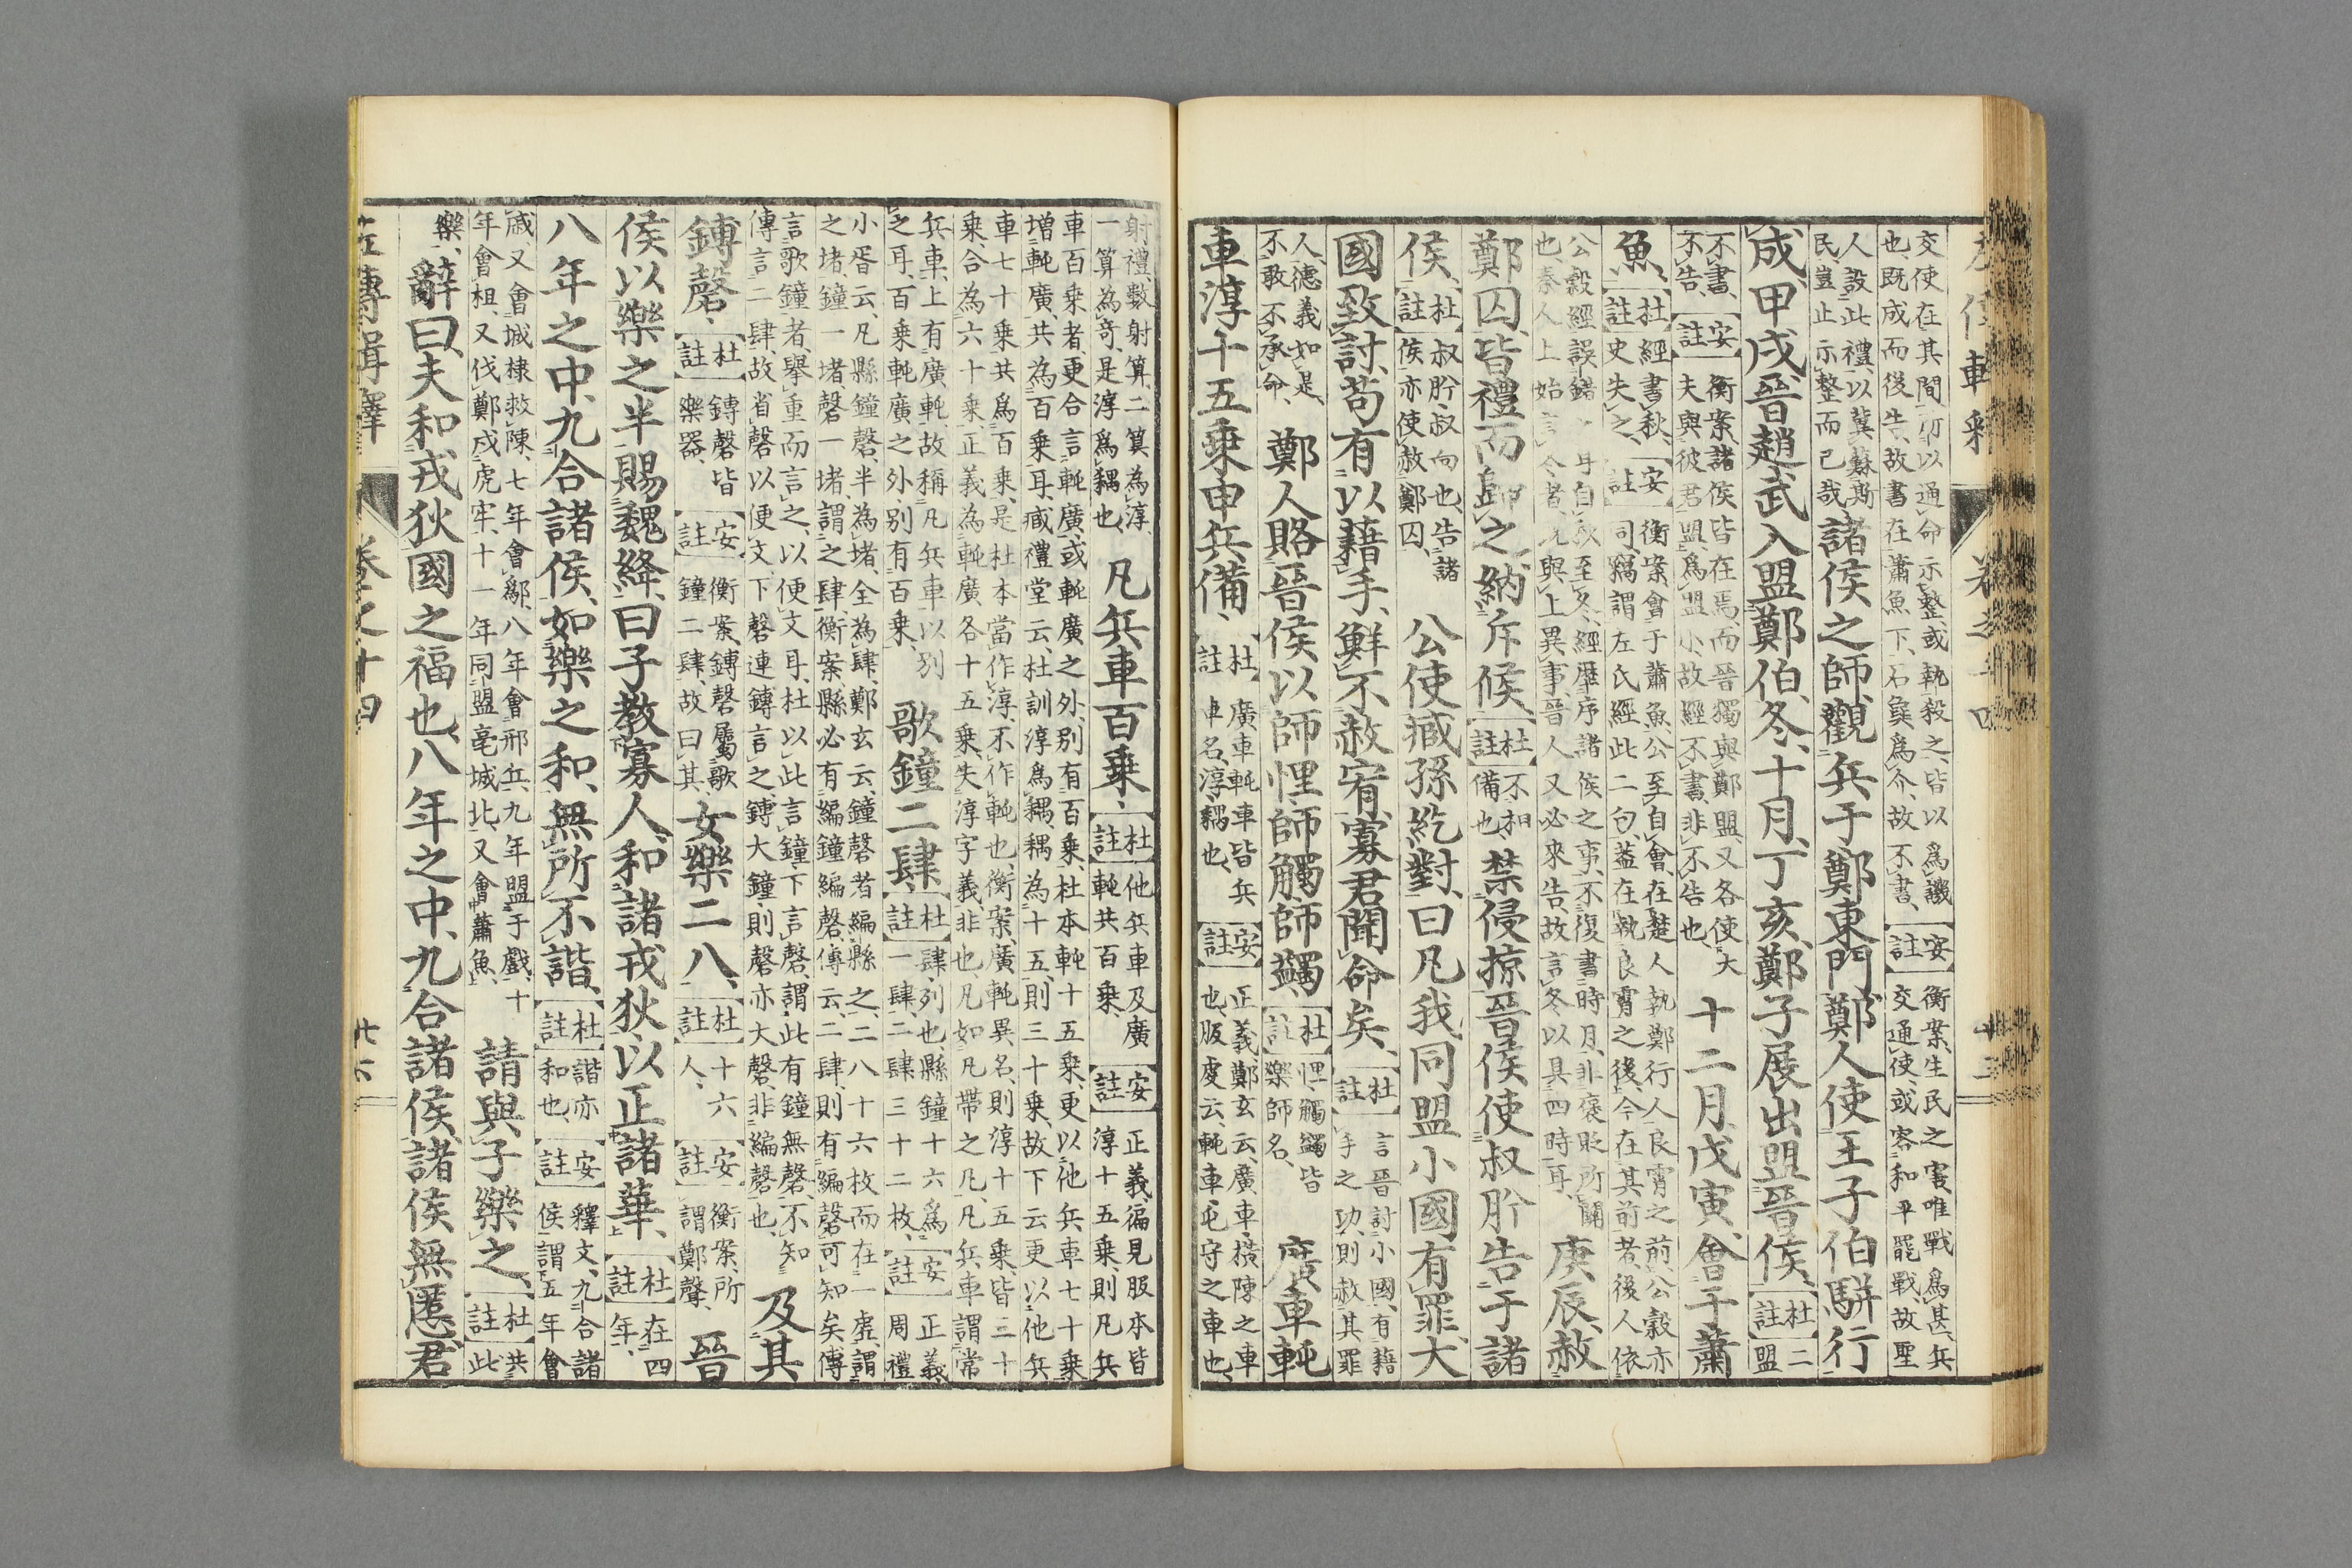 交使在其間、所以通命示整、或執殺之、皆以爲譏
也、既成而後告、故書在蕭魚下、石㚟爲介、故不書、
安註
衡案、生民之害、唯戰爲甚、兵
交通使、或客和平罷戰、故聖
人設此禮、以冀蘇斯
民、豈止示整而已哉、
諸侯之師、觀兵于鄭東門、鄭人使王子伯駢行
成、甲戌、晉趙武入盟鄭伯、冬、十月、丁亥、鄭子展出盟晉侯、
杜註
二
盟
不書、
不告、
安註
衡案、諸侯皆在焉、而晉獨與鄭盟、又各使大
夫與彼君盟、爲盟小、故經不書、非不告也、
十二月、戊寅、會于蕭
魚、
杜註
經書秋、
史失之、
安註
衡案、會于蕭魚、公至自會、在楚人執鄭行人良霄之前、公穀亦
同、竊謂左氏經此二句、蓋在執良霄之後、今在其前者、後人依
公穀經誤錯
也、秦人上始言冬者
至冬、經歷序諸侯之事、不復書時月、非褒貶所關
上異事、晉人又必來告、故言冬以具四時耳、
庚辰、赦
鄭囚、皆禮而歸之、納斥候、
杜註
不相
備也、
禁侵掠、晉侯使叔肸告于諸
侯、
杜註
叔肸、叔向也、告諸
侯亦使赦鄭囚、
公使臧孫紇對、曰凡我同盟、小國有罪、大
國致討、苟有以藉手、鮮不赦宥、寡君聞命矣、
杜註
言晉討小國、有藉
手之功、則赦其罪
人、德義如是、
不敢不承命、
鄭人賂晉侯、以師悝、師觸、師蠲、
杜註
悝觸蠲皆
樂師名、
廣車軘
車淳十五乗甲兵備、
杜註
廣車軘車、皆兵
車名、淳、耦也、
安註
正義、鄭玄云、廣車、橫陳之車
也、服虔云、軘車、屯守之車也、
射禮、數射算、二算為淳、
一算為奇、是淳爲耦也、
凡兵車百乗、
杜註
他兵車及廣
軘共百乗、
安註
正義、徧見服本皆
淳十五乗、則凡兵
車百乗者、更合言軘廣、或軘廣之外、別有百乗、杜本軘十五乗、更以他兵車七十乗
増軘廣、共為百乗耳、臧禮堂云、杜訓淳爲耦、耦為十五、則三十乗、故下云更以他兵
車七十乗、共爲百乗、是杜本當作淳、不作軘也、衡案、廣軘異名、則淳十五乗、皆三十
乗、合為六十乗、正義為軘廣各十五乗、失淳字義、非也、凡如凡帶之凡、凡兵車謂常
兵車、上有廣軘、故稱凡兵車以別
之耳、百乗軘廣之外、別有百乗、
歌鐘二肆、
杜註
肆、列也、縣鐘十六爲
一肆、二肆三十二枚、
安註
正義、
周禮
小胥云、凡縣鐘磬、半為堵、全為肆、鄭玄云、鐘磬者編縣之、二八十六枚、而在一虡、謂
之堵、鐘一堵、磬一堵、謂之肆、衡案、縣必有編鐘編磬、傳云、二肆、則有編磬可知矣、傳
言歌鐘者、擧重而言之、以便文耳、杜以此言鐘、下言磬、謂此有鐘無磬、不知
傳言二肆、故省磬以便文、下磬連鎛言之、鎛大鐘、則磬亦大磬、非編磬也、
及其
鎛磬、
杜註
鎛磬皆
樂器、
安註
衡案、鎛磬屬歌
鐘二肆、故曰其、
女樂二八、
杜註
十六
人、
安註
衡案、所
謂鄭聲、
晉
侯以樂之半賜魏絳、曰子教寡人、和諸戎狄、以正諸華、
杜註
在四
年、
八年之中、九合諸侯、如樂之和、無所不諧、
杜註
諧亦
和也、
安註
釋文、九合諸
侯、謂五年會
戚、又會城棣救陳、七年會鄬、八年會邢丘、九年盟于戲、十
年會柤、又伐鄭戍虎牢、十一年同盟亳城北、又會蕭魚、
請與子樂之、
杜註
共
此
樂、
辭曰、夫和戎狄、國之福也、八年之中、九合諸侯、諸侯無慝、君
左傳輯釋
卷之十四
廿六